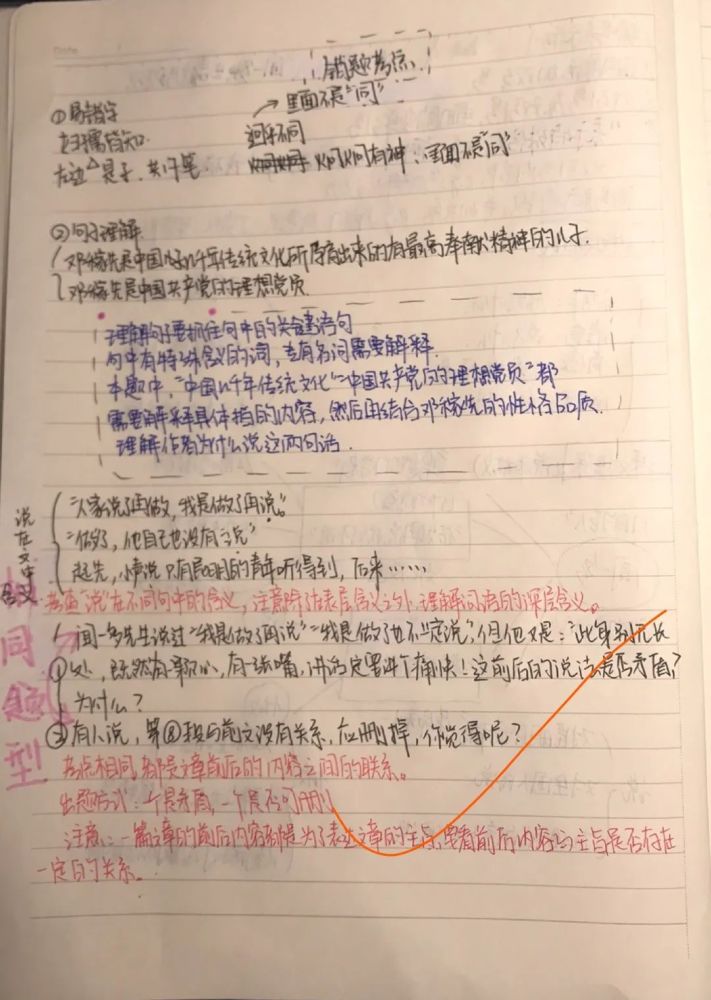 错题考点
里面不是“同”
①易错字
妇孺皆知
迥乎不同
左边是子，共17笔
炯炯有神：里面不是“同”
②句子理解
邓稼先是中国几千年传统文化所孕育出来的有最高奉献精神的儿子.
邓稼先是中国共产党的理想党员
理解句子要抓住句中的关键语句
句中有特殊含义的词，专有名词需要解释.
本题中，“中国几千年传统文化”“中国共产党的理想党员”都
需要解释具体指的内容，然后再结合邓稼先的性格品质.
理解作者为什么说这两句话.
说在文中含义
“人家说了再做，我是做了再说。”
“做了，他自己也没有说”
起先，小声说只有昆明的青年听得到，后来……
考查“说”在不同句中的含义，注意除估表层含义之外，理解词语的深层含义。
同题型
①闻一多先生说过“我是做了再说”“我是做了也不一定说”，但他又是：“此身别无长
处，既然有一颗心，有一张嘴，讲话定要讲个痛快！这前后的说法是否矛盾？
为什么？
②有人说，第⑧段与前文没有关系，应删掉，你觉得呢？
考点相同都是文章前后的内容之间的联系。
出题方式：一个是矛盾，一个是否可删
注意：一篇文章的前后内容都是为了表达文章的主旨，要看前后内容与主旨是否存在
一定的关系。